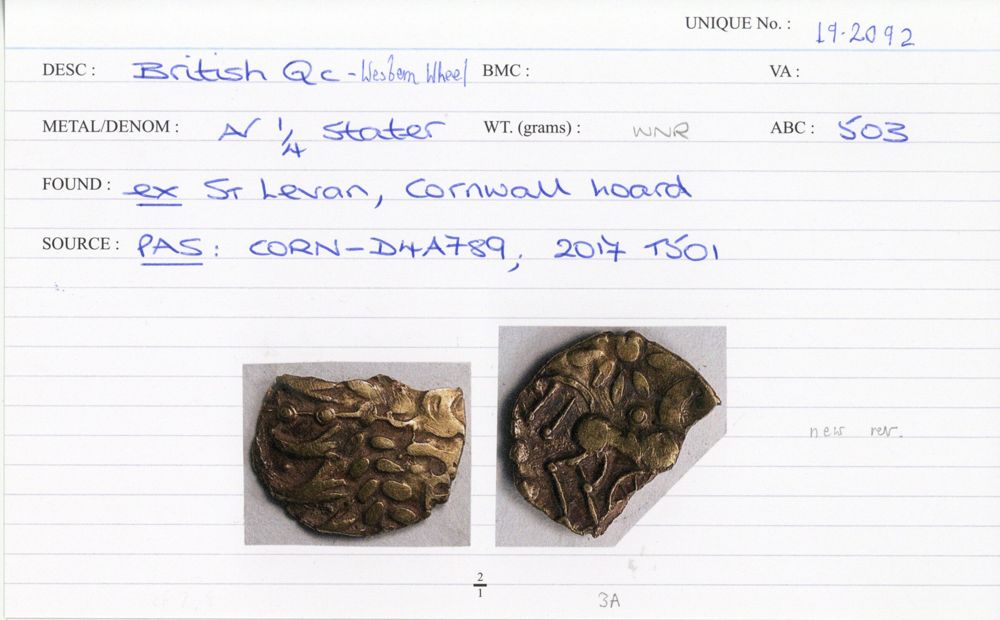 UNIQUE No. : 19-2092
DESC : British Qc - Western Wheel BMC : VA :
METAL/DENOM : AV 1/4 Stater WT. (grams) : WNR ABC : 503
FOUND : ex St Levan, Cornwall hoard
SOURCE : PAS: CORN-D4A789, 2017 T501
new rev.
2/1
3A